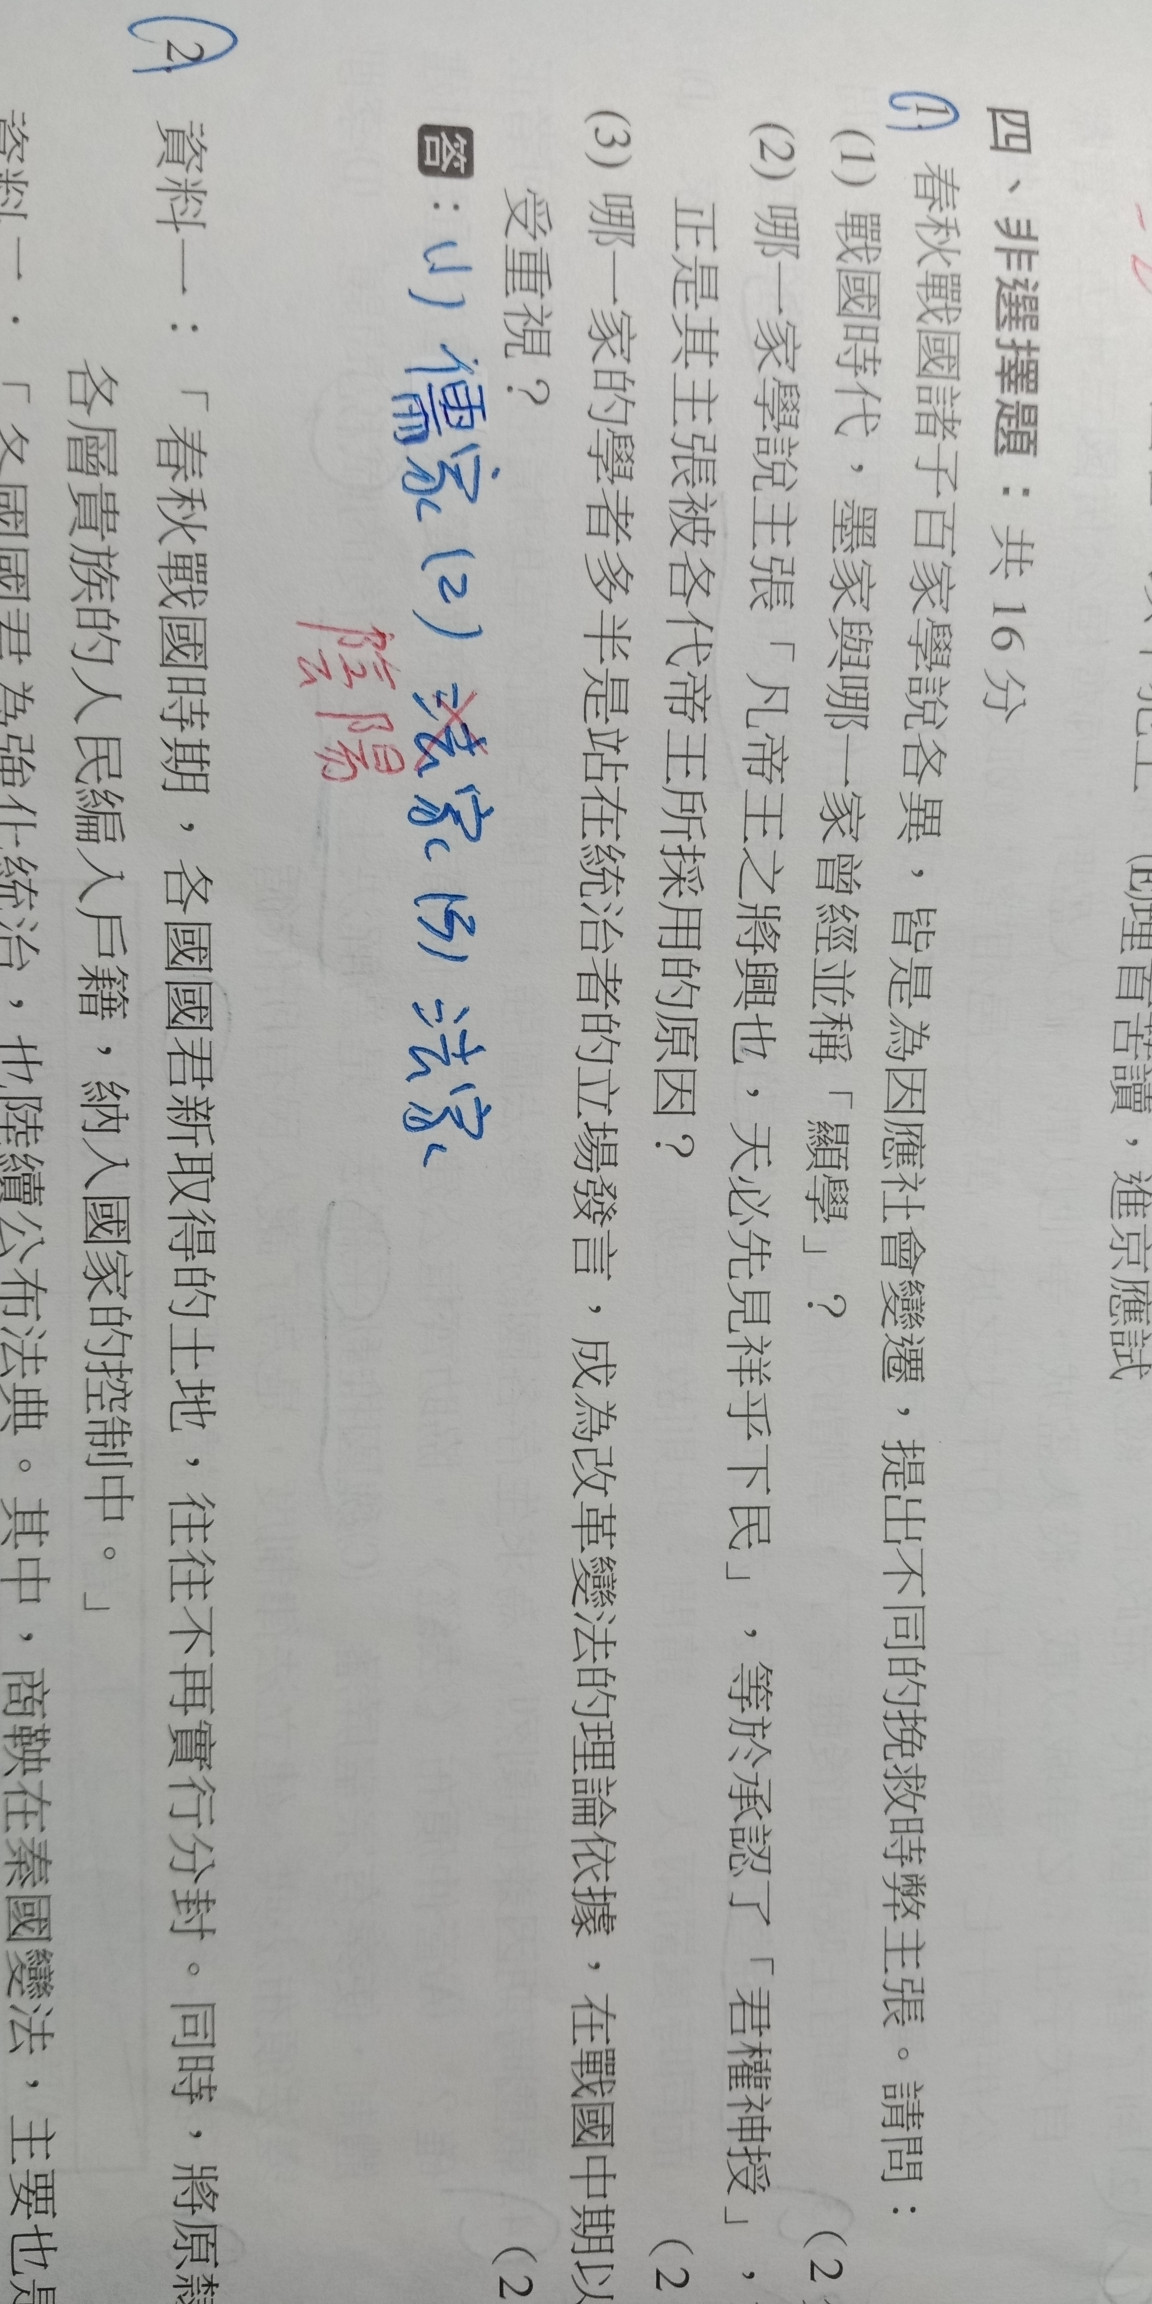 懸梁苦讀，進京應試
四、非選擇題：共 16 分
1. 春秋戰國諸子百家學說各異，皆是為因應社會變遷，提出不同的挽救時弊主張。請問：
(1) 戰國時代，墨家與哪一家曾經並稱「顯學」？ (2
(2) 哪一家學說主張「凡帝王之將興也，天必先見祥乎下民」，等於承認了「君權神授」，
正是其主張被各代帝王所採用的原因？ (2
(3) 哪一家的學者多半是站在統治者的立場發言，成為改革變法的理論依據，在戰國中期以
受重視？ (2
答：(1) 儒家 (2) 法家 (3) 法家
陰陽
2. 資料一：「春秋戰國時期，各國國君新取得的土地，往往不再實行分封。同時，將原
各層貴族的人民編入戶籍，納入國家的控制中。」
資料二：「各國國君為強化統治，也陸續公布法典。其中，商鞅在秦國變法，主要也是